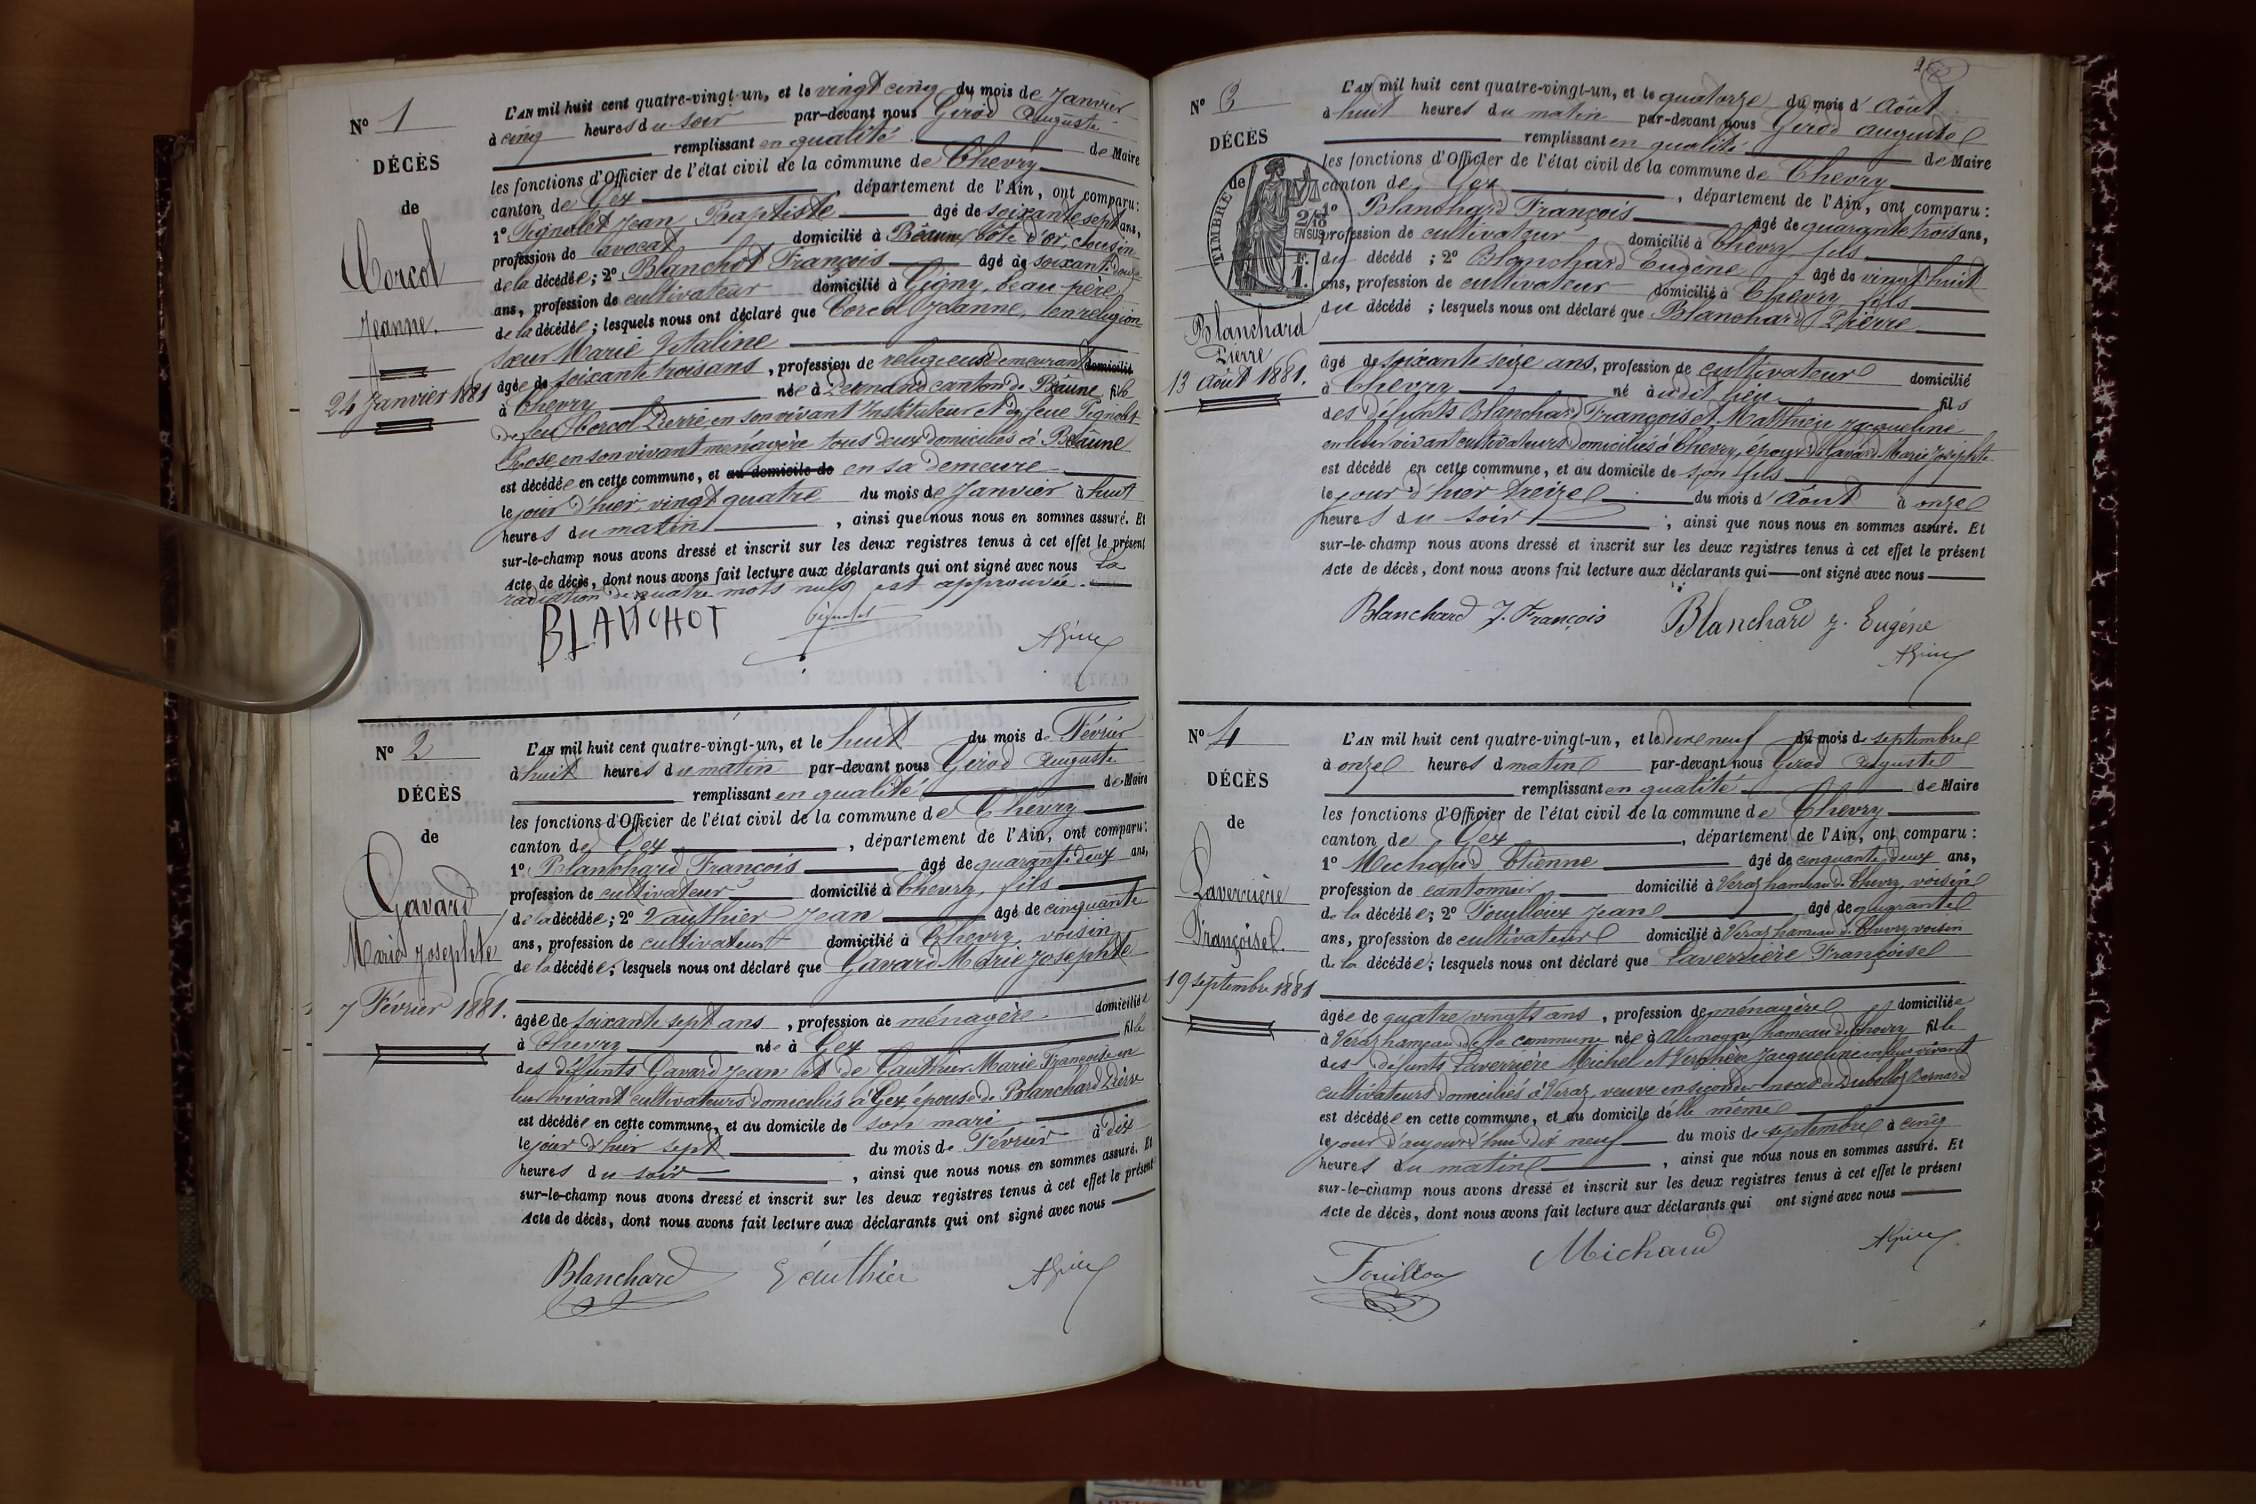 N° 1
DÉCÈS
de
Corcol
Jeanne.
24 Janvier 1881
L'AN mil huit cent quatre-vingt-un, et le vingt cinq du mois de Janvier
à cinq heures du soir par-devant nous Girod Auguste
remplissant en qualité de Maire
les fonctions d'Officier de l'état civil de la commune de Chevry
canton de Gex, département de l'Ain, ont comparu:
1° Pignolet Jean Baptiste âgé de soixante sept ans,
profession de avocat domicilié à Beaune, Côte d'or, cousin
de la décédée; 2° Blanchot François âgé de soixante douze
ans, profession de cultivateur domicilié à Gigny, beau père
de la décédée; lesquels nous ont déclaré que Corcol Jeanne, en religion
sœur Marie
âgée de soixante trois ans, profession de religieuse demeurant domicilié
à Chevry née à canton de Beaune fille
de feu Corcol Pierre en son vivant Instituteur et de feue Pignolet
Rose, en son vivant ménagère tous deux domiciliés à Beaune
est décédée en cette commune, et au domicile de en sa demeure
le jour d'hier, vingt quatre du mois de Janvier à huit
heures du matin, ainsi que nous nous en sommes assuré. Et
sur-le-champ nous avons dressé et inscrit sur les deux registres tenus à cet effet le présent
Acte de décès, dont nous avons fait lecture aux déclarants qui ont signé avec nous La
radiation de quatre mots nuls est approuvée.
BLANCHOT Pignolet
N° 2
DÉCÈS
de
Gavard
Marie Josephte
7 Février 1881.
L'AN mil huit cent quatre-vingt-un, et le huit du mois de Février
à huit heures du matin par-devant nous Girod Auguste
remplissant en qualité de Maire
les fonctions d'Officier de l'état civil de la commune de Chevry
canton de Gex, département de l'Ain, ont comparu:
1° Blanchard François âgé de quarante deux ans,
profession de cultivateur domicilié à Chevry, fils
de la décédée; 2° Gauthier Jean âgé de cinquante
ans, profession de cultivateur domicilié à Chevry, voisin
de la décédée; lesquels nous ont déclaré que Gavard Marie Josephte
âgée de soixante sept ans, profession de ménagère domiciliée
à Chevry née à Gex fille
des défunts Gavard Jean et de Gauthier Marie Françoise en
leur vivant cultivateurs domiciliés à Gex, épouse de Blanchard Pierre
est décédée en cette commune, et au domicile de son mari
le jour d'hier sept du mois de Février à dix
heures du soir, ainsi que nous nous en sommes assuré. Et
sur-le-champ nous avons dressé et inscrit sur les deux registres tenus à cet effet le présent
Acte de décès, dont nous avons fait lecture aux déclarants qui ont signé avec nous
Blanchard Gauthier
2
N° 3
DÉCÈS
de
TIMBRE
2/10
EN SUS
F.
1.
Blanchard
Pierre
13 Août 1881.
L'AN mil huit cent quatre-vingt-un, et le quatorze du mois d'Août
à huit heures du matin par-devant nous Girod Auguste
remplissant en qualité de Maire
les fonctions d'Officier de l'état civil de la commune de Chevry
canton de Gex, département de l'Ain, ont comparu:
1° Blanchard François âgé de quarante trois ans,
profession de cultivateur domicilié à Chevry, fils
du décédé; 2° Blanchard Eugène âgé de vingt huit
ans, profession de cultivateur domicilié à Chevry fils
du décédé; lesquels nous ont déclaré que Blanchard Pierre
âgé de soixante seize ans, profession de cultivateur domicilié
à Chevry né audit lieu fils
des défunts Blanchard François et Matthieu Jacqueline
en leur vivant cultivateurs domiciliés à Chevry, époux de Gavard Marie Josephte
est décédé en cette commune, et au domicile de son fils
le jour d'hier treize du mois d'Août à onze
heures du soir, ainsi que nous nous en sommes assuré. Et
sur-le-champ nous avons dressé et inscrit sur les deux registres tenus à cet effet le présent
Acte de décès, dont nous avons fait lecture aux déclarants qui ont signé avec nous
Blanchard J. François Blanchard J. Eugéne
N° 4
DÉCÈS
de
Laverrière
Françoise.
19 septembre 1881
L'AN mil huit cent quatre-vingt-un, et le dix neuf du mois de septembre
à onze heures d matin par-devant nous Girod Auguste
remplissant en qualité de Maire
les fonctions d'Officier de l'état civil de la commune de Chevry
canton de Gex, département de l'Ain, ont comparu:
1° Michaud Etienne âgé de cinquante deux ans,
profession de cantonnier domicilié à Veraz hameau de Chevry, voisin
de la décédée; 2° Fouilloux Jean âgé de quarante
ans, profession de cultivateur domicilié à Veraz hameau de Chevry voisin
de la décédée; lesquels nous ont déclaré que Laverrière Françoise
âgée de quatre vingts ans, profession de ménagère domiciliée
à Véraz hameau de la commune née à Allemogne hameau de Thoiry fille
des défunts Laverrière Michel et Jacqueline en leur vivant
cultivateurs domiciliés à Veraz, veuve en seconde noces de Bernard
est décédée en cette commune, et au domicile d'elle même
le jour d'aujourd'hui dix neuf du mois de septembre à cinq
heures du matin, ainsi que nous nous en sommes assuré. Et
sur-le-champ nous avons dressé et inscrit sur les deux registres tenus à cet effet le présent
Acte de décès, dont nous avons fait lecture aux déclarants qui ont signé avec nous
Fouilloux Michaud